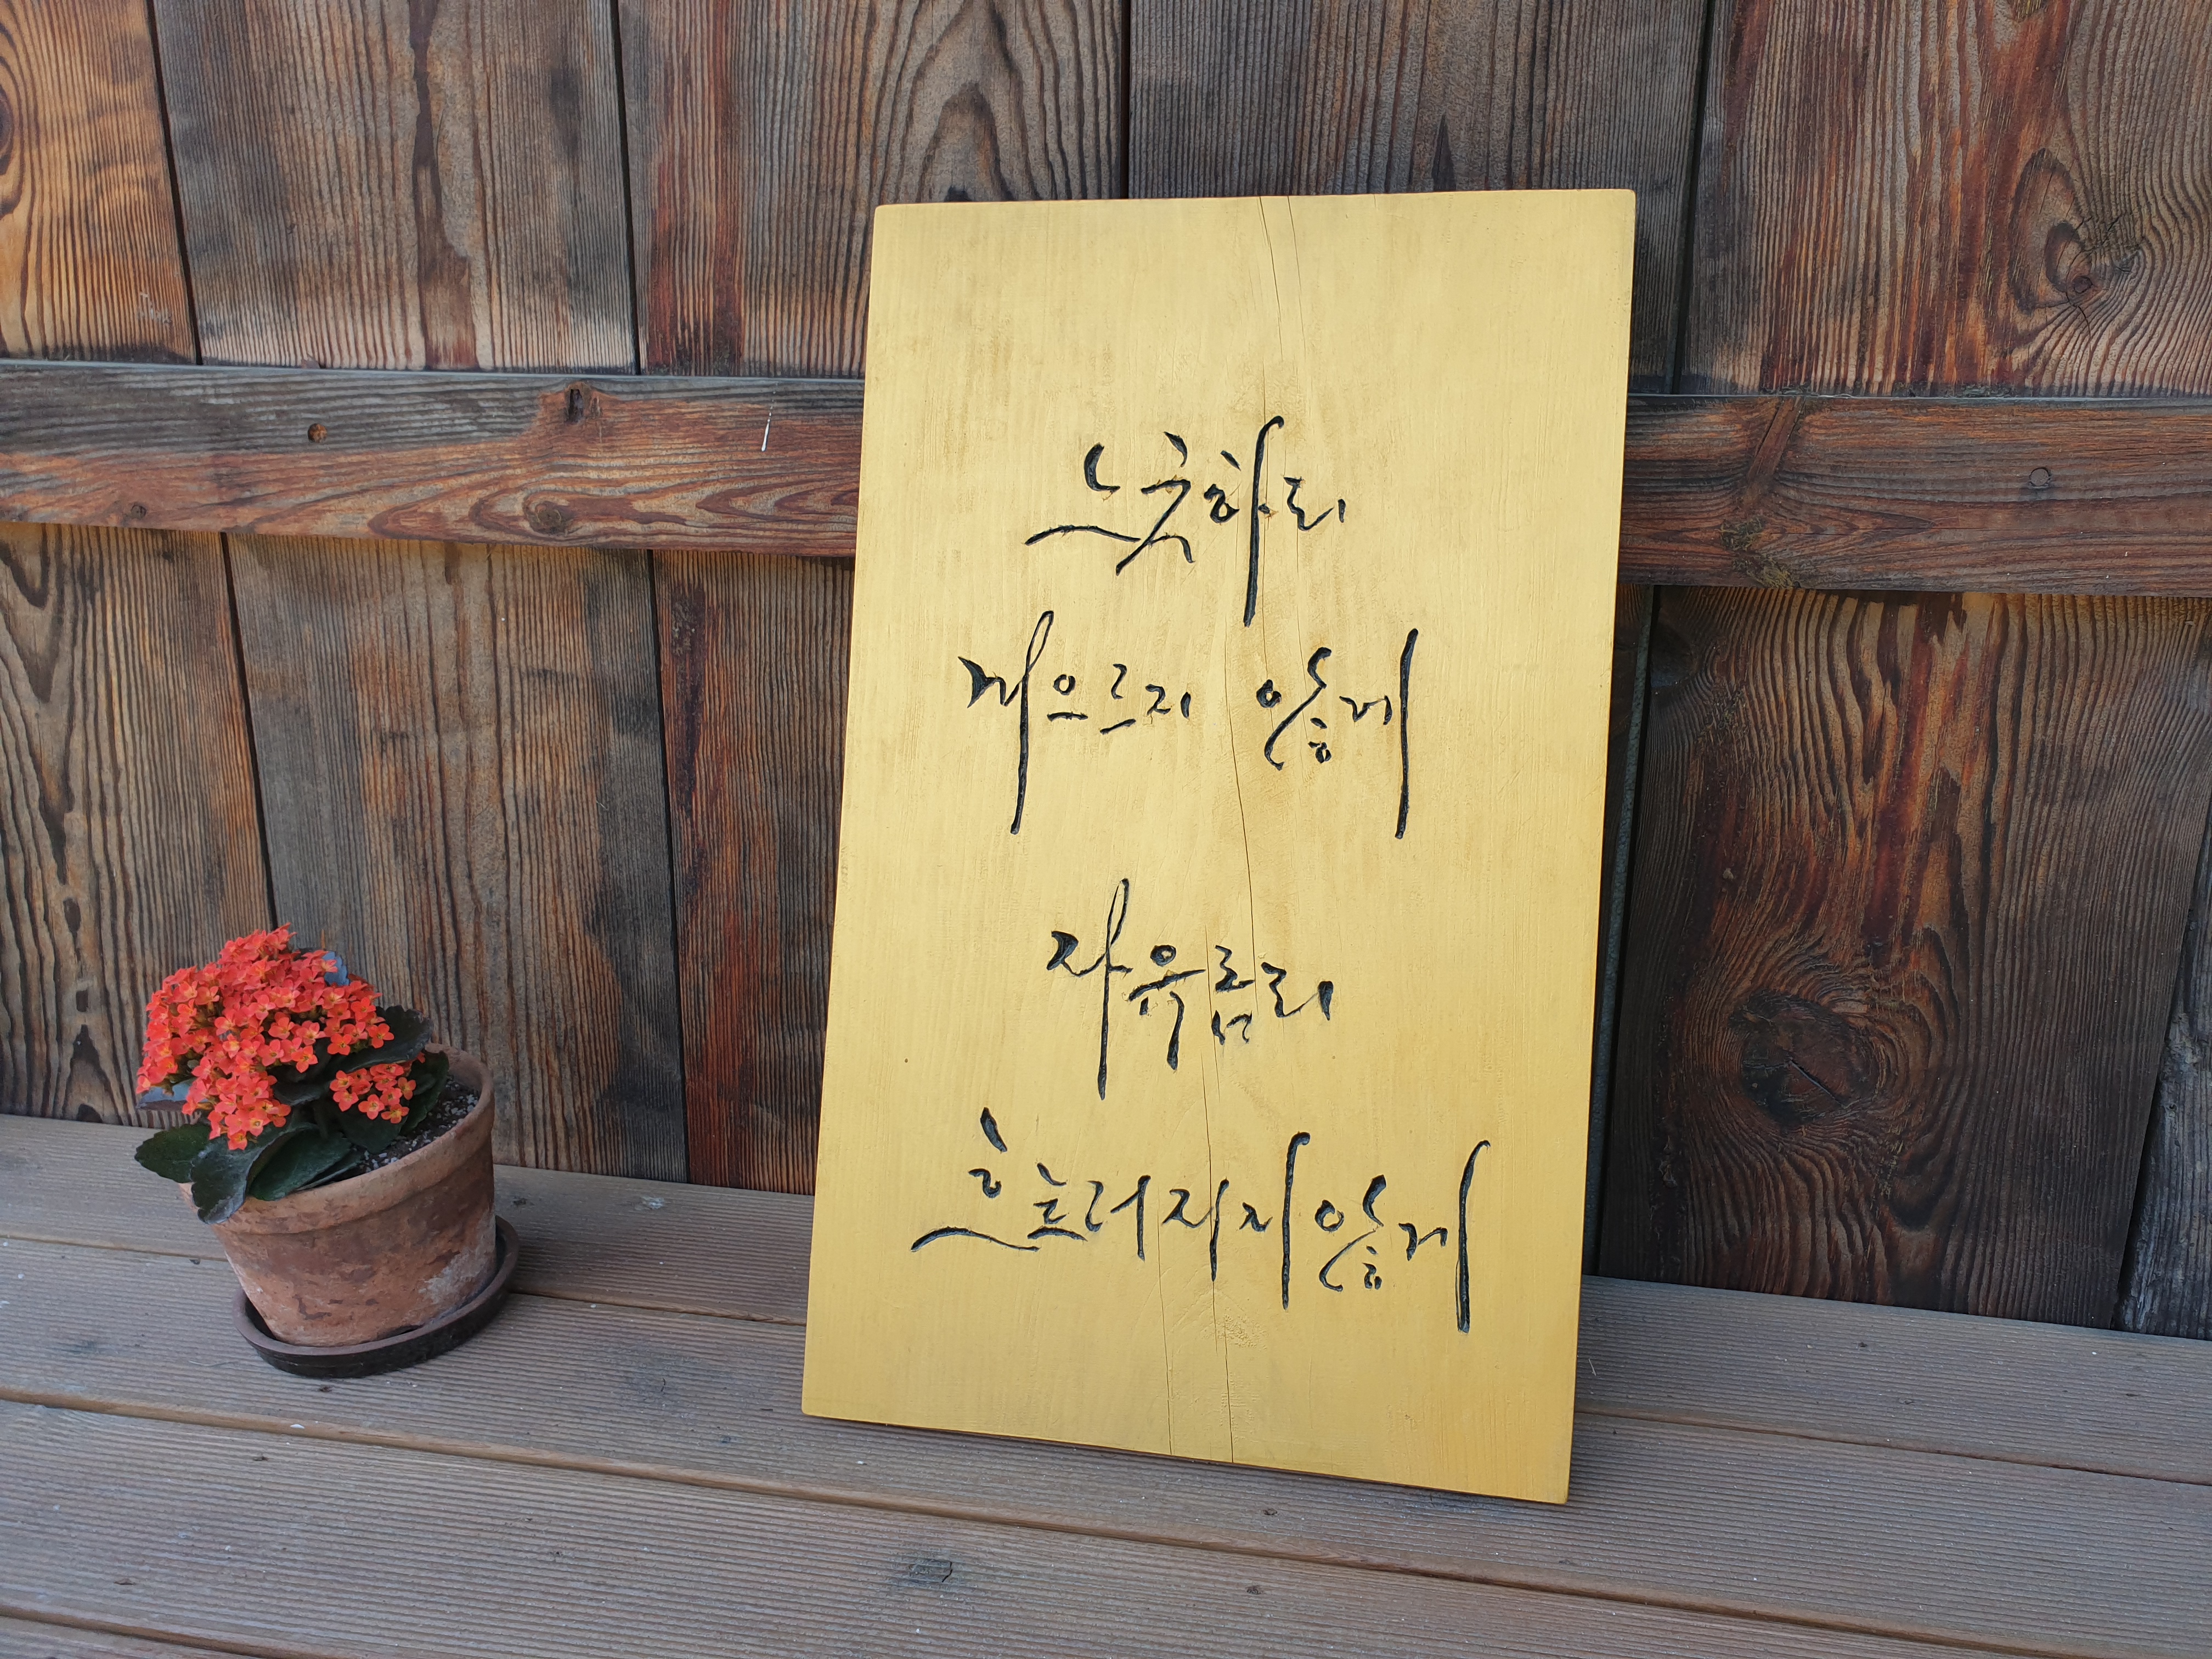 느긋하되
게으르지 않게
자유롭되
흐트러지지않게